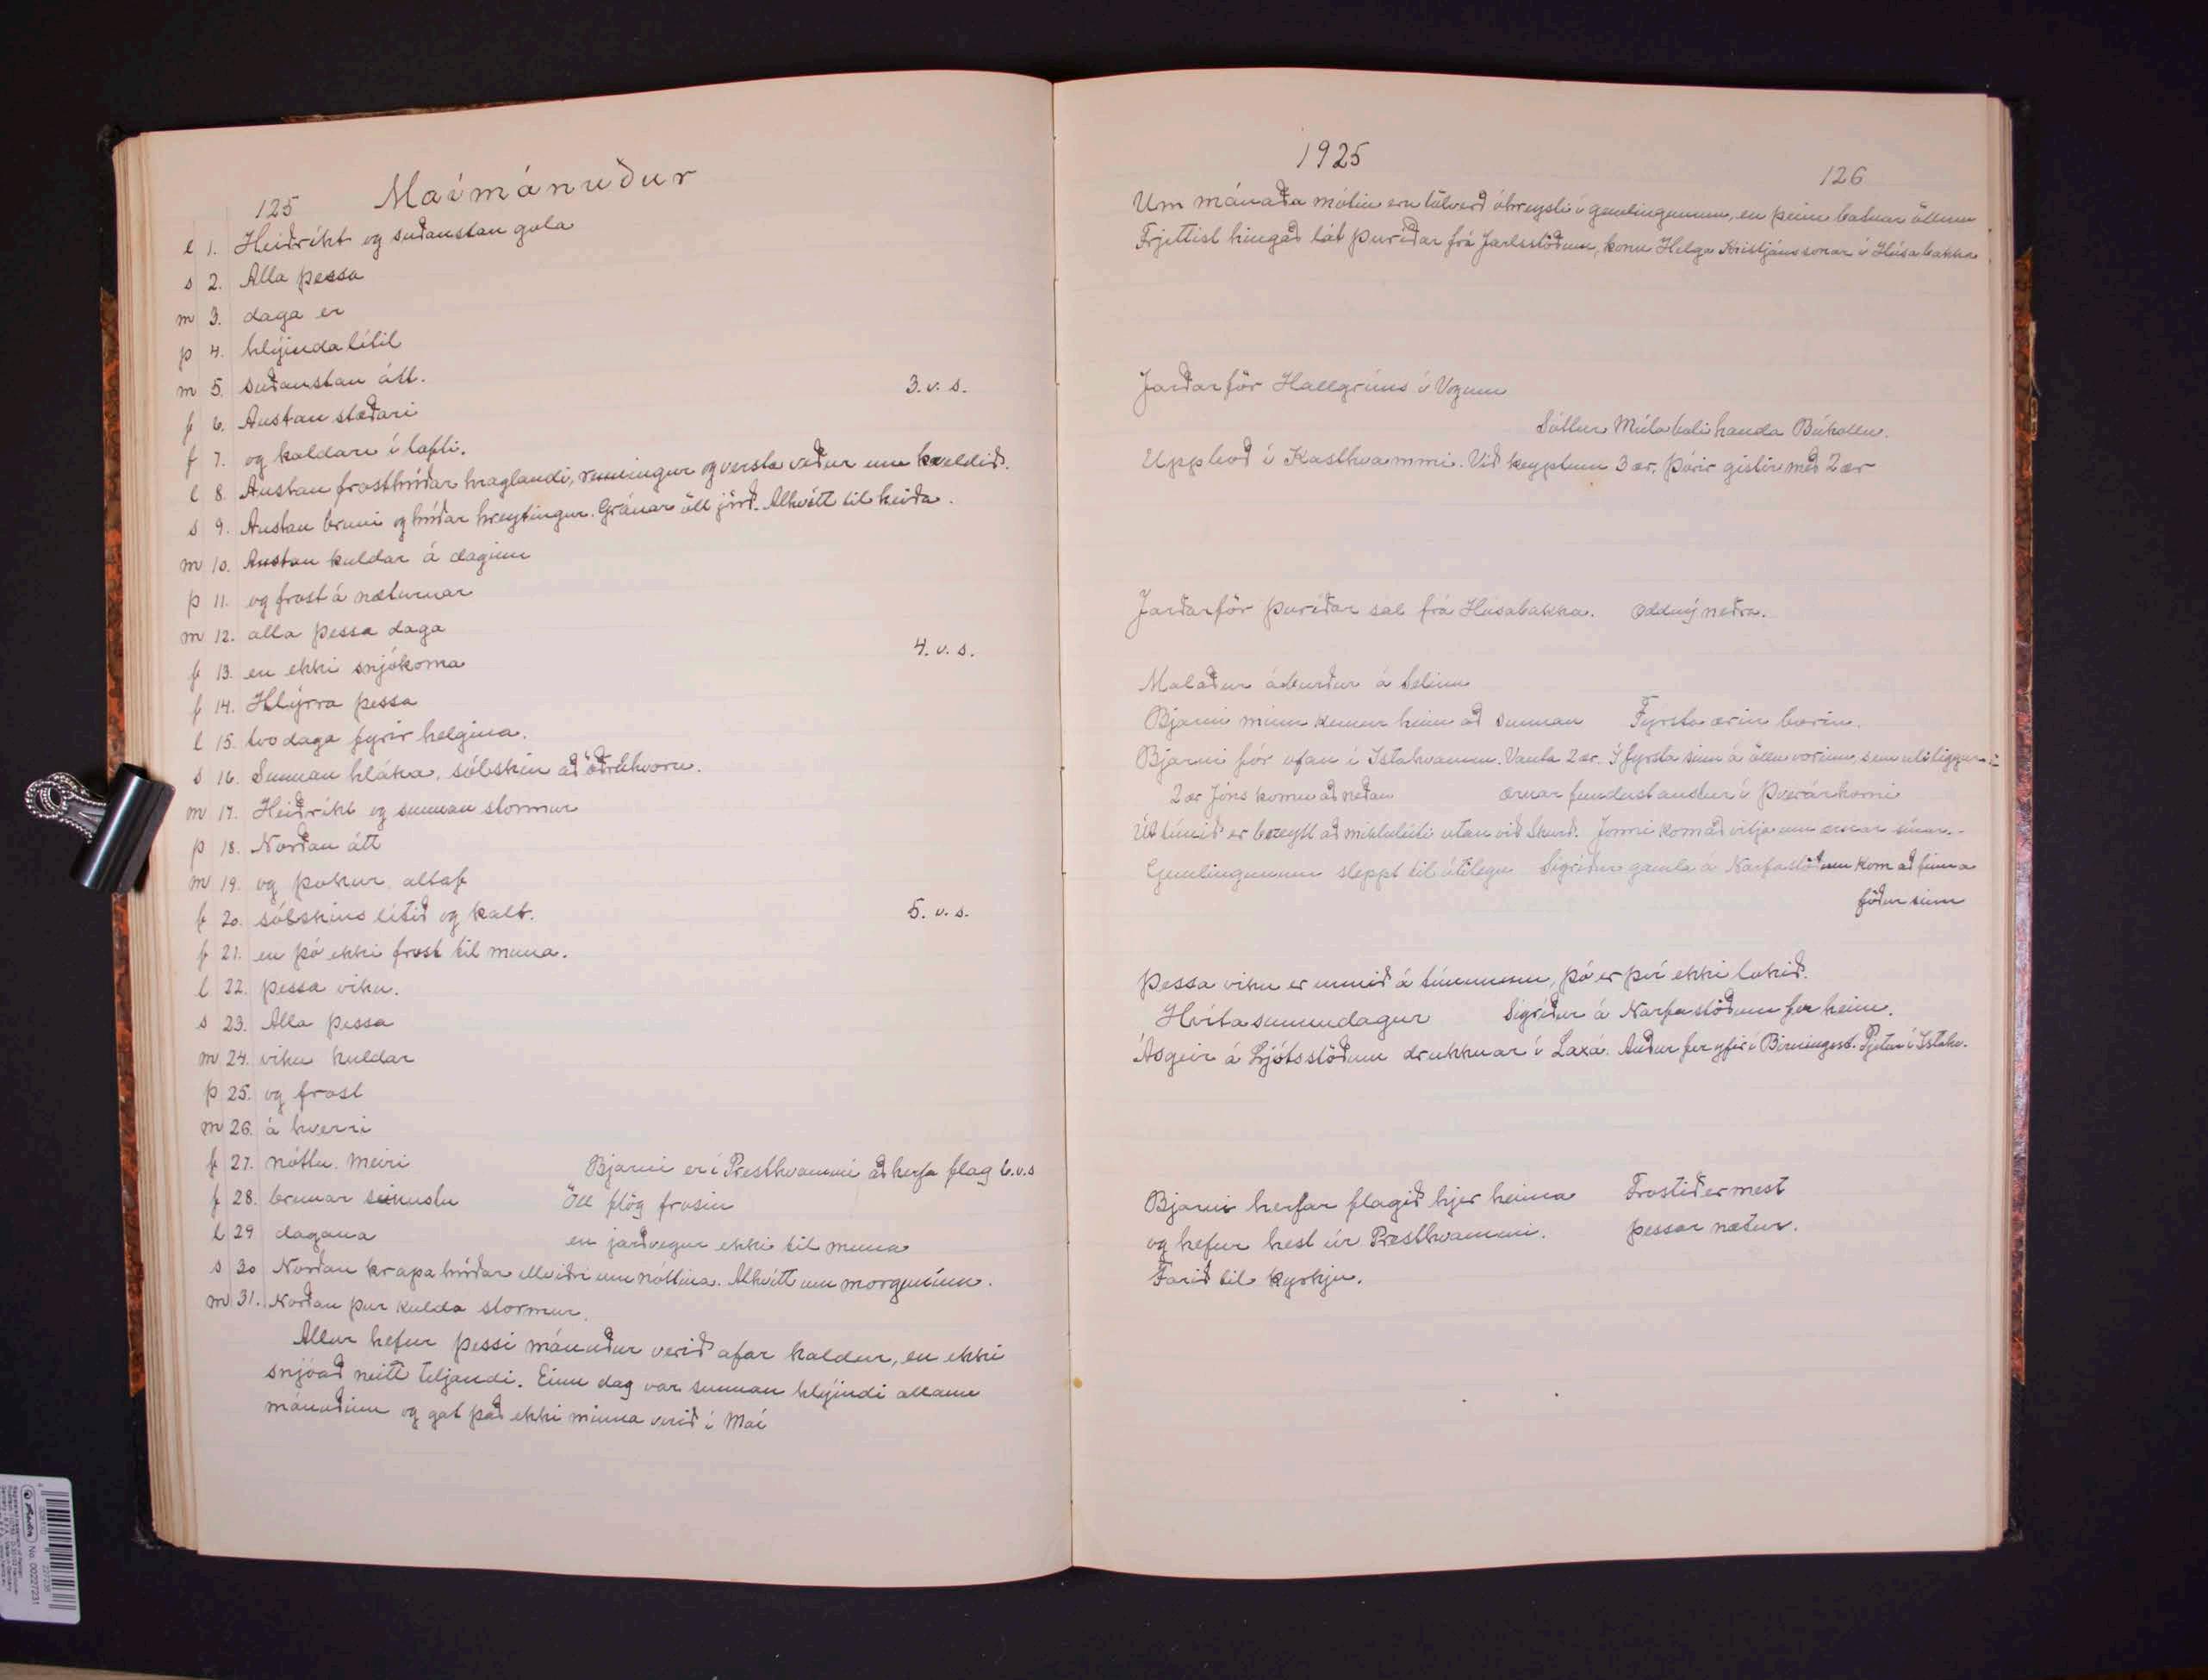 125 Maímánuður
l 1. Heiðríkt og suðaustan gola
s 2. Alla þessa
m 3. daga er
þ 4. hlýinda lítil
m 5. suðaustan átt. 3. v. s.
f 6. Austan stæðari
f 7. og kaldari í lofti.
l 8. Austan frosthríðar hraglandi, renningur og versta veður um kveldið.
s 9. Austan bruni og hríðar hreytingur. Gránar öll jörð. Alhvítt til heiða.
m 10. Austan kuldar á daginn
þ 11. og frost á næturnar
m 12. alla þessa daga
f 13. en ekki snjókoma 4. v. s.
f 14. Hlýrra þessa
l 15. tvo daga fyrir helgina.
s 16. Sunnan hláka, sólskin að öðruhvoru.
m 17. Heiðríkt og sunnan stormur
þ 18. Norðan átt
m 19. og þokur altaf
f 20. sólskins lítið og kalt. 5. v. s.
f 21. en þó ekki frost til muna.
l 22. þessa viku.
s 23. Alla þessa
m 24. viku kuldar
þ 25. og frost
m 26. á hverri
f 27. nóttu. Meiri Bjarni er í Presthvammi að herfa flag 6. v. s
f 28. brunar seinustu Öll flög frosin
l 29 dagana en jarðvegur ekki til muna
s 30 Norðan krapahríðar illviðri um nóttina. Alhvítt um morguninn.
m 31. Norðan þur kulda stormur.
Allur hefur þessi mánuður verið afar kaldur, en ekki
snjóað neitt teljandi. Einn dag var sunnan hlýindi allann
mánuðinn og gat það ekki minna verið í Maí
1925
126
Um mánaða mótin eru tölverð óhreysti í gemlingunum, en þeim batnar öllum
Frjettist hingað lát Þuríðar frá Jarlsstöðum, konu Helga Kristjánssonar í Húsabakka
Jarðarför Hallgríms í Vogum
Sóttur Múla boli handa Búkollu.
Uppboð í Kasthvammi. Við keyptum 3 ær. Þórir gistir með 2 ær
Jarðarför Þuríðar sál frá Húsabakka. Oddný neðra.
Malaður áburður á Selinu
Bjarni minn kemur heim að sunnan Fyrsta ærin borin.
Bjarni fór ofan í Ístahvamm. Vanta 2 ær. Í fyrsta sinn á öllu vorinu, sem útiliggur
2 ær Jóns komu að neðan ærnar fundust austur í Þverárhorni
Út túnið er breytt að miklu leiti utan við Skurð. Jonni kom að vitja um ærnar sínar.
Gemlingunum sleppt til útilegu Sigríður gamla á Narfastöðum kom að finna
föður sinn
Þessa viku er unnið á túnunum, þó er því ekki lokið.
Hvítasunnudagur Sigríður á Narfastöðum fer heim.
Ásgeir á Ljótsstöðum drukknar í Laxá. Auður fer yfir í Birningsst. Pjetur í Ístahv.
Bjarni herfar flagið hjer heima Frostið er mest
og hefur hest úr Presthvammi. þessar nætur.
Farið til kyrkju.